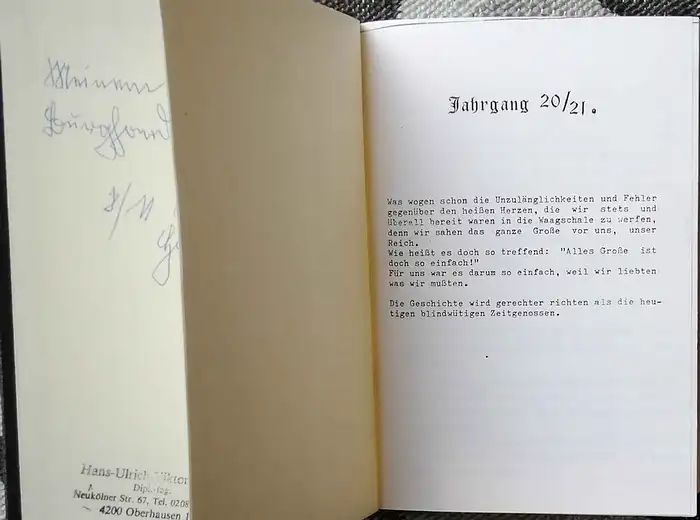 Meinem
8/11
Hans-Ulrich
Dipl.-Ing.
Neuköllner Str. 67, Tel. 0208
4200 Oberhausen 1
Jahrgang 20/21.
Was wogen schon die Unzulänglichkeiten und Fehler
gegenüber den heißen Herzen, die wir stets und
überall bereit waren in die Waagschale zu werfen,
denn wir sahen das ganze Große vor uns, unser
Reich.
Wie heißt es doch so treffend: "Alles Große ist
doch so einfach!"
Für uns war es darum so einfach, weil wir liebten
was wir mußten.
Die Geschichte wird gerechter richten als die heu-
tigen blindwütigen Zeitgenossen.